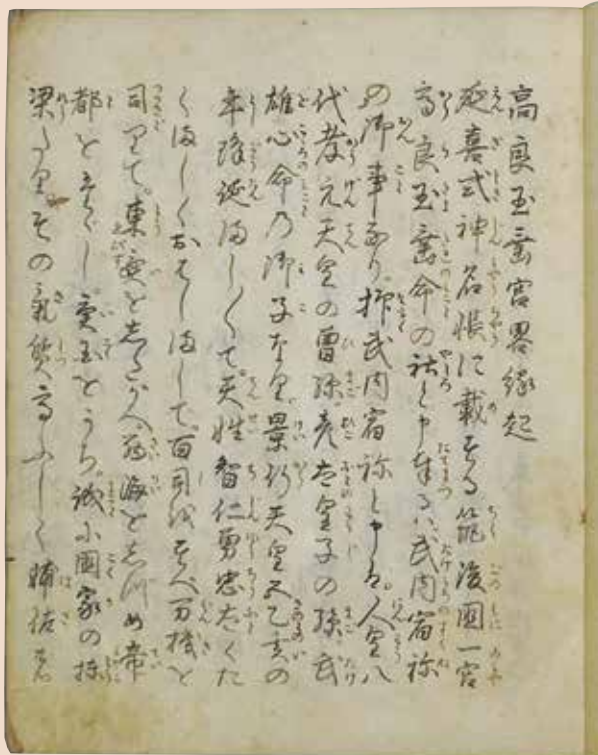 高良玉垂宮畧縁起
延喜式神名帳に載する筑後国一宮
高良玉垂命の社と申奉るハ武内宿祢
の御事なり。抑武内宿祢と申は。人皇八
代孝元天皇の曽孫彦太皇子の孫。武
雄心命の御子なり。景行天皇 乙亥の
年降誕ましくて。天性智仁勇忠たくた
くましくおはしまして。百司をすべ万機と
司りて。東夷をしたがへ。西海をしづめ帝
都を し。 をうち。誠に国家の棟
梁たり。その気質高ふしく輔佐